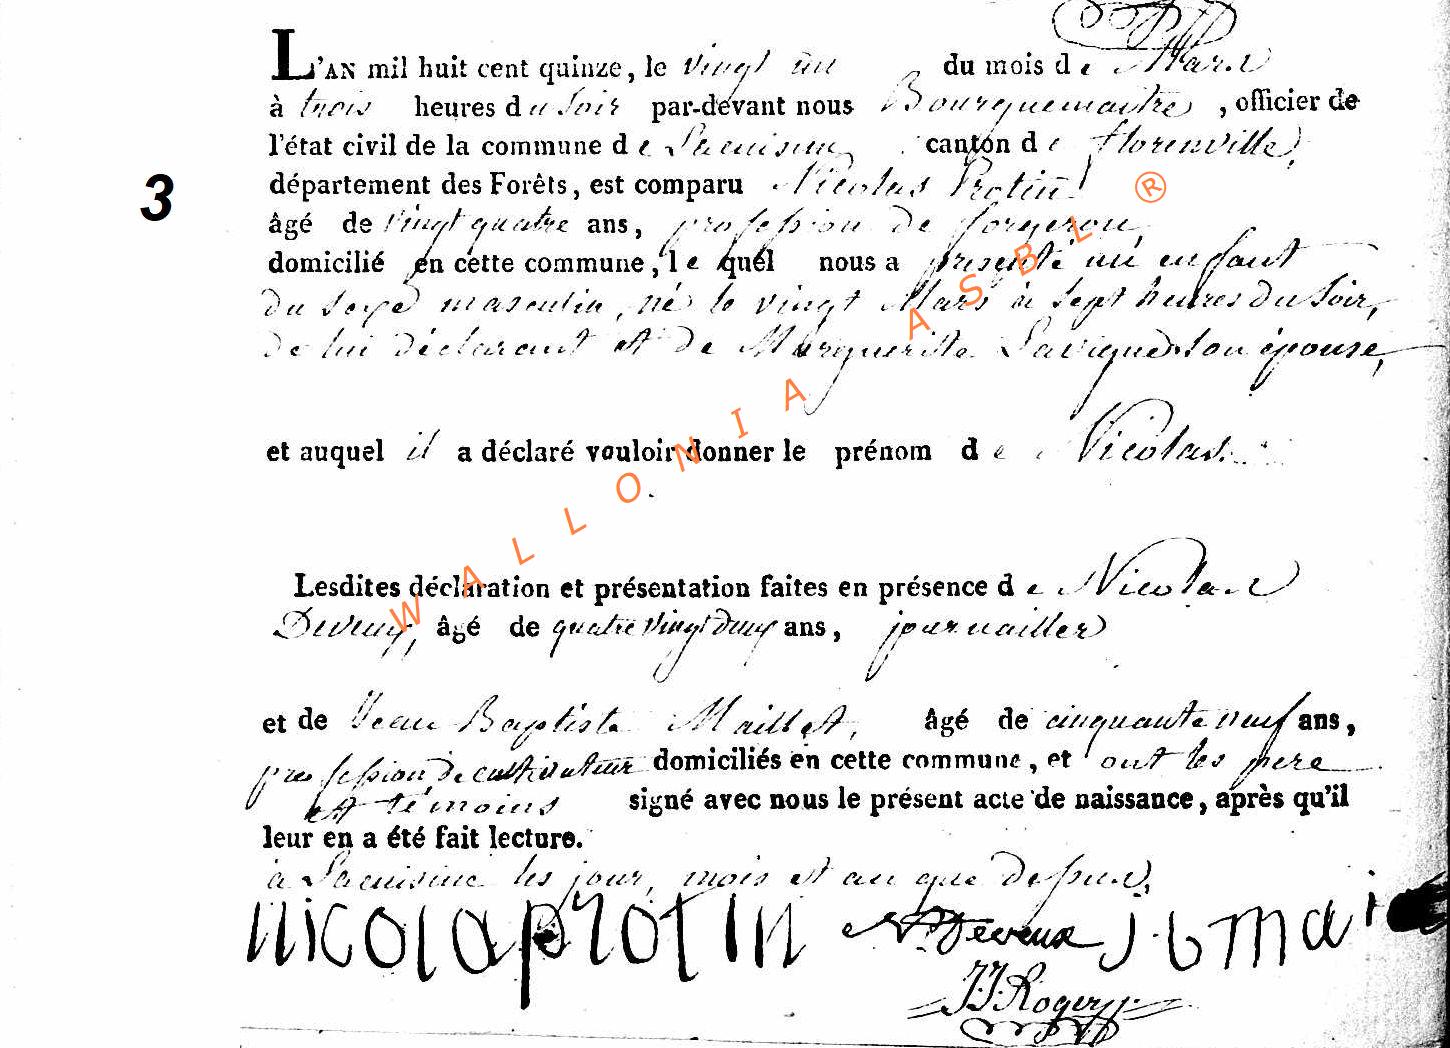 L'AN mil huit cent quinze, le vingt un du mois de Mars
à trois heures du Soir par-devant nous Bourguemaitre, officier de
l'état civil de la commune de Lacuisine canton de florenville,
département des Forêts, est comparu Nicolas Protin
3
âgé de vingt quatre ans, profession de forgeron,
domicilié en cette commune, le quel nous a présenté un enfant
du sexe masculin, né le vingt Mars à sept heures du Soir,
de lui déclarant et de Marguerite Lavigne son épouse,
et auquel il a déclaré vouloir donner le prénom de Nicolas.
WALLONIA ASBL ®
Lesdites déclaration et présentation faites en présence de Nicolas
Deveux, âgé de quatre vingt deux ans, journailler
et de Jean Baptiste Maillet, âgé de cinquante neuf ans,
profession de cultivateur domiciliés en cette commune, et ont les pere
et témoins signé avec nous le présent acte de naissance, après qu'il
leur en a été fait lecture.
à Lacuisine les jour, mois et an que dessus,
nicola protin N. Deveux j. b mai
J.J. Rogery